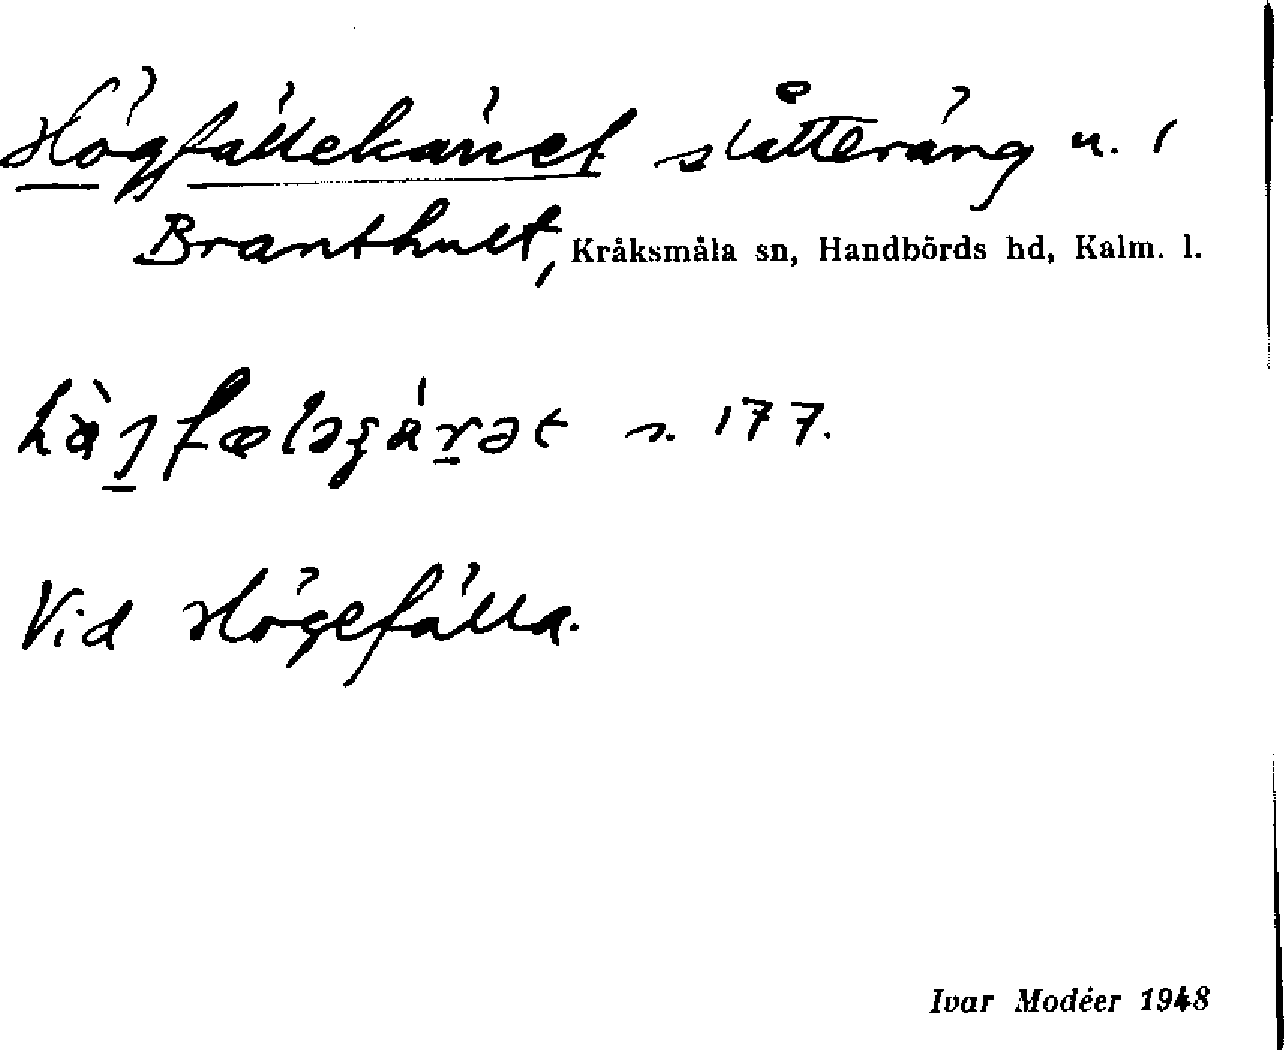 Högfällekärret slåtteräng u. i
Branthult, Kråksmåla sn, Handbörds hd, Kalm. l.
s. 177.
Vid Högefälla.
Ivar Modéer 1948